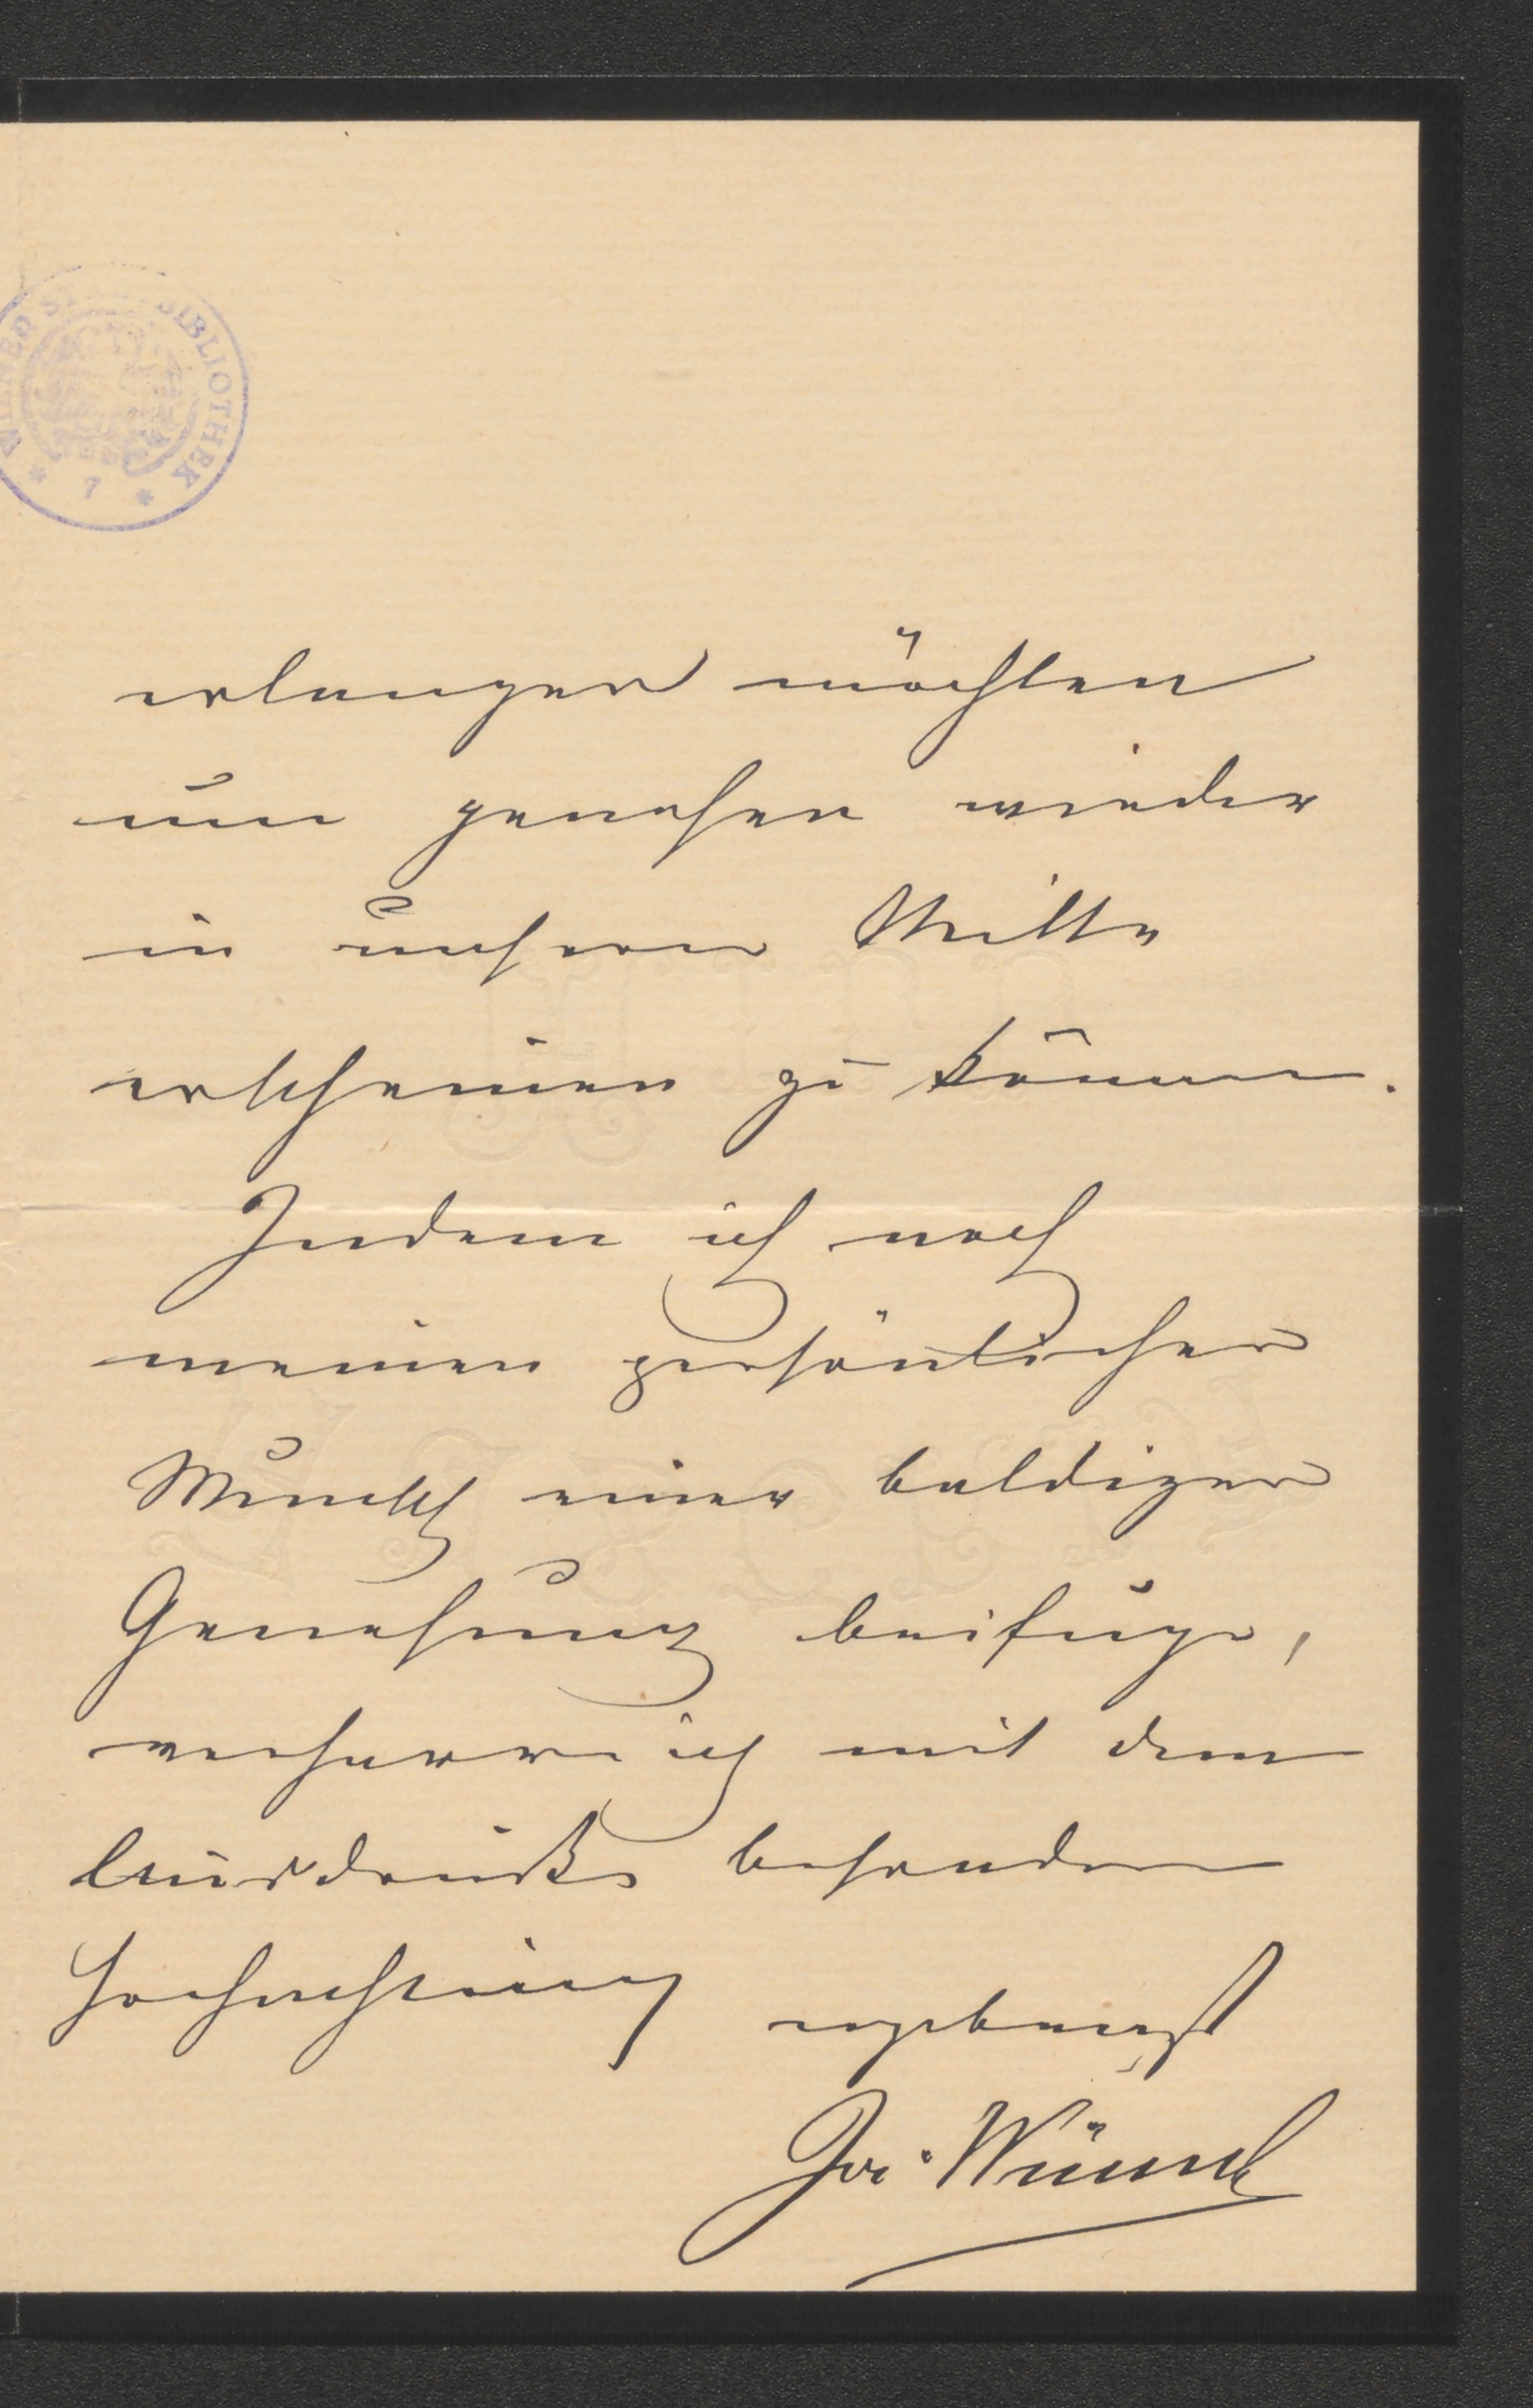 WIENER STADTBIBLIOTHEK
* 7 *
erlangen möchten
um genesen wieder
in unserer Mitte
erscheinen zu können.
Indem ich noch
meinen persönlichen
Wunsch einer baldigen
Genesung beifüge,
verharre ich mit dem
Ausdrucke besonderer
Hochachtung
ergebenst
Jos. Wünsch